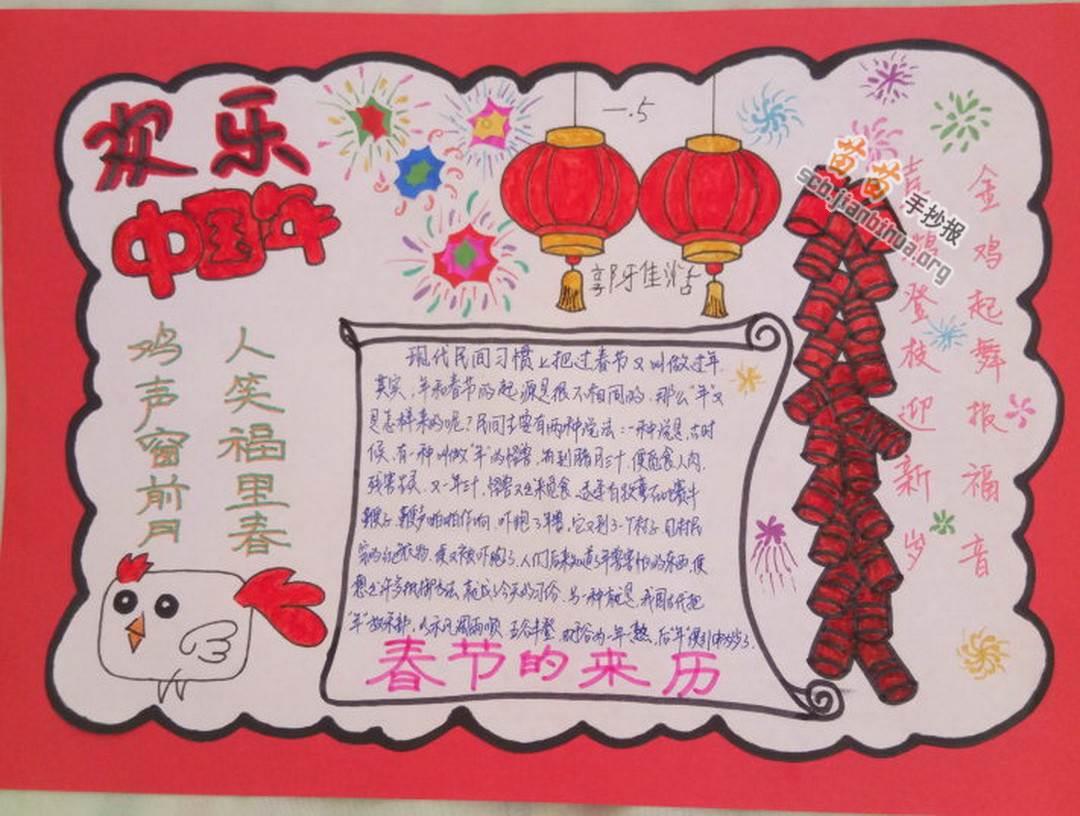 欢乐
中国年
一.5
苗苗
手抄报
scb.jianbihua.org
人笑福里春
鸡声窗前月
金鸡起舞报福音
吉鸡登枝迎新岁
现代民间习惯上把过春节又叫做过年.
其实,年和春节的起源是很不相同的.那么"年"又
是怎样来的呢?民间主要有两种说法:一种说是,古时
候,有一种叫做"年"的怪兽,每到腊月三十,便觅食人肉,
残害 又一年三十,怪兽又出来觅食,
鞭子,鞭声啪啪作响,吓跑了年兽,它又到了一个村子
衣物,便又被吓跑了,人们后来知道了年兽害怕的东西,便
想出许多抵御 办法,就成了今天的习俗.另一种就是,我国古代把
五谷丰登, 谷为一年一熟,后"年"便引申为岁了.
春节的来历